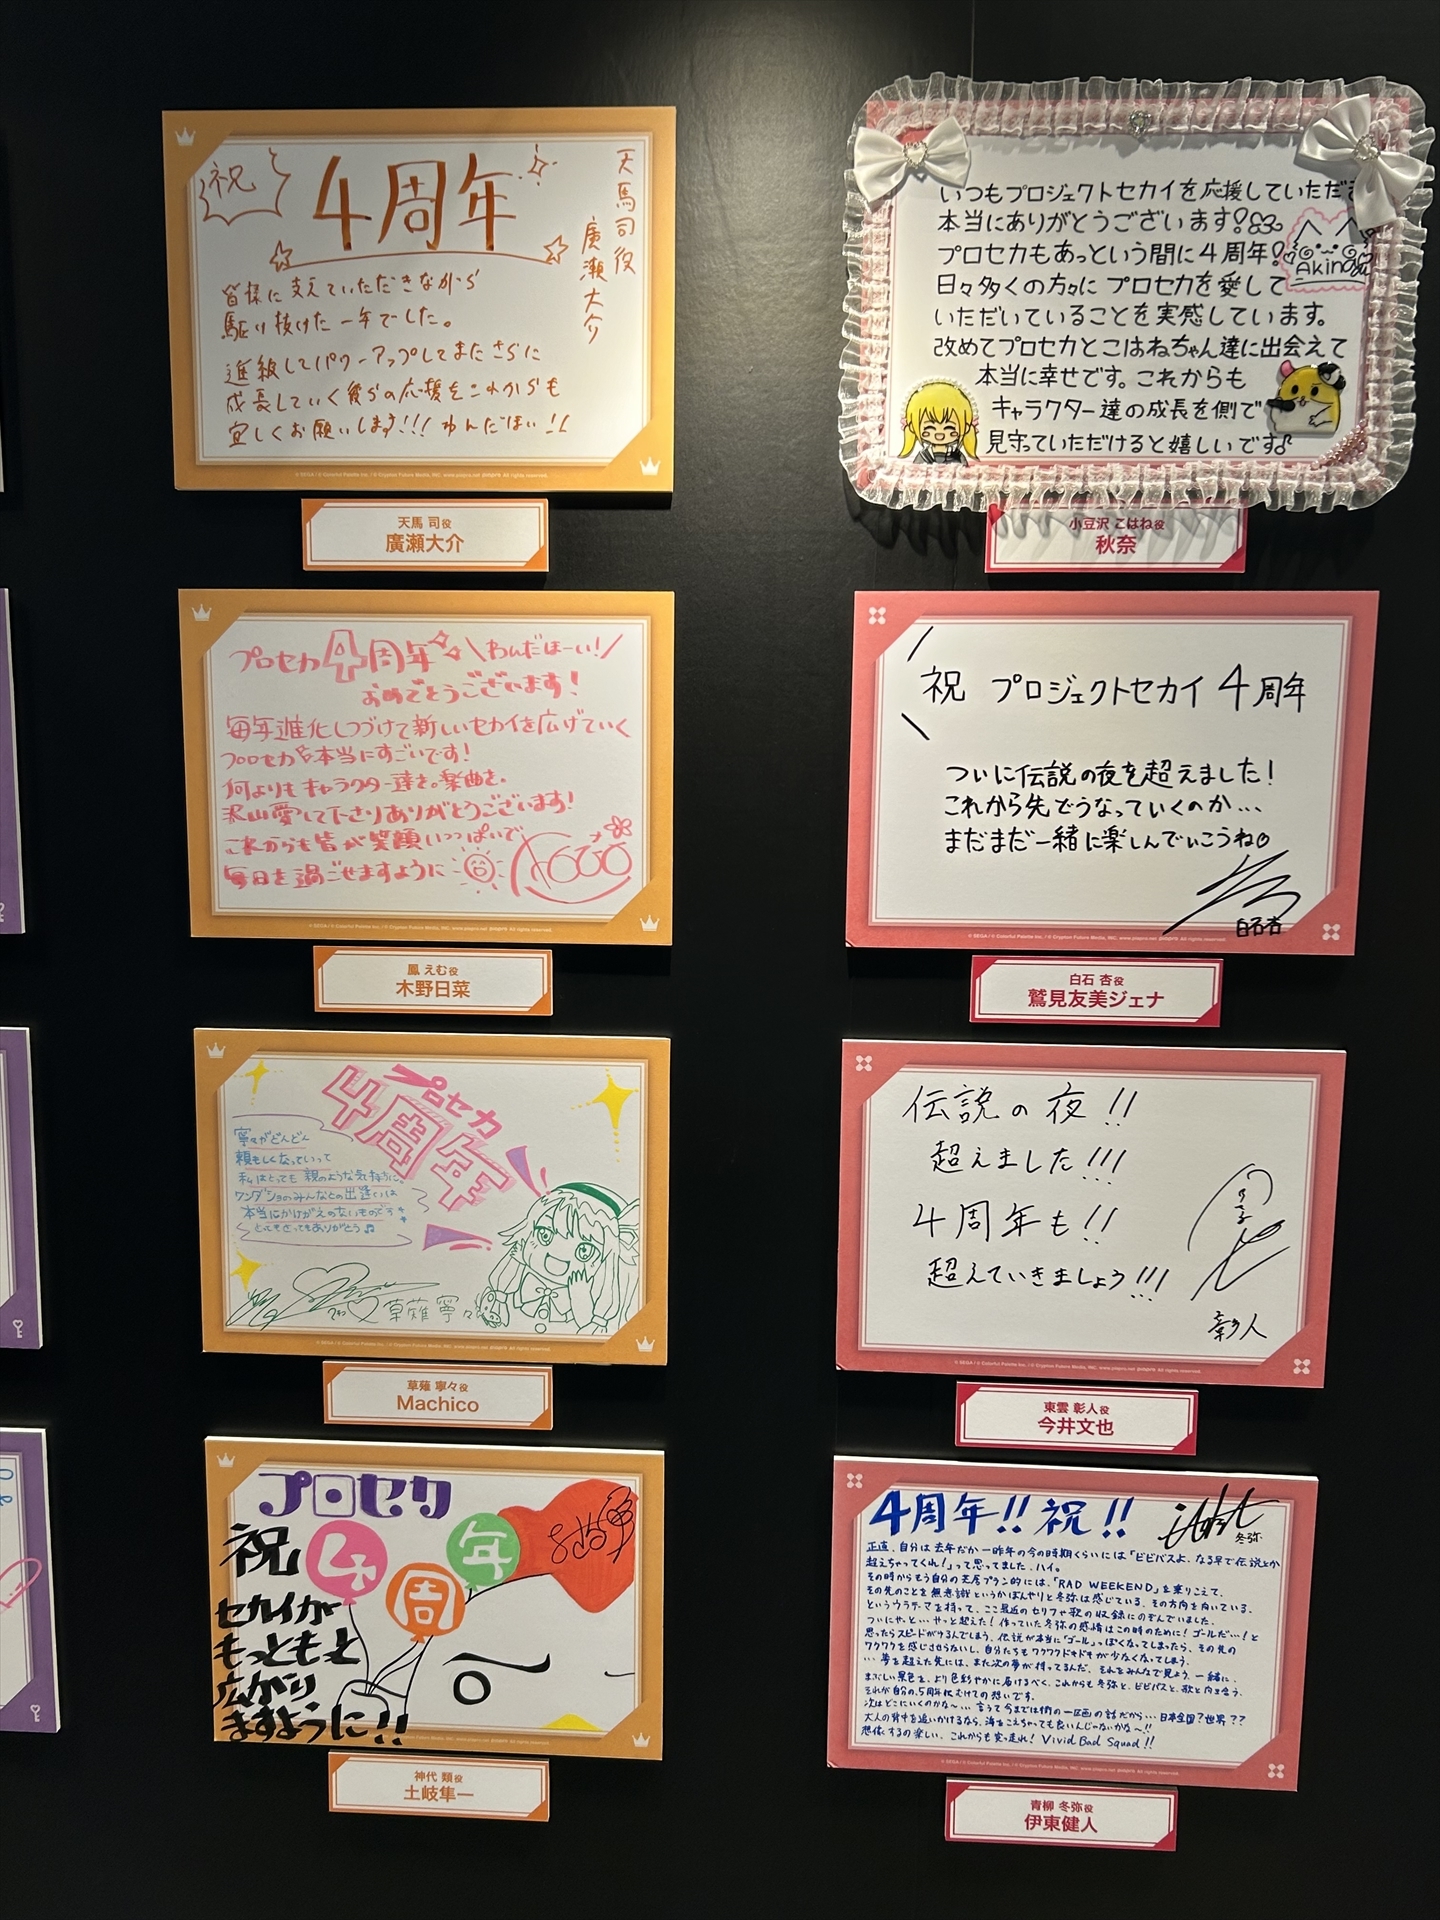 祝
4周年
天馬司役
廣瀬大介
皆様に支えていただきながら
駆け抜けた一年でした。
進級してパワーアップしてまたさらに
成長していく彼らの応援をこれからも
宜しくお願いします!!! わんだほい!!
天馬 司役
廣瀬大介
プロセカ4周年 \わんだほーい!/
おめでとうございます!
毎年進化しつづけて新しいセカイを広げていく
プロセカ 本当にすごいです!
何よりもキャラクター達を。楽曲を。
沢山愛して下さりありがとうございます!
これからも皆が笑顔いっぱいで
毎日を過ごせますように
鳳 えむ役
木野日菜
プロセカ
4周年
寧々がどんどん
頼もしくなっていって
私はとても親のような気持ちに。
ワンダショのみんなとの出逢いは
本当にかけがえのないものです
とってもとってもありがとう♬
草薙寧々
草薙 寧々役
Machico
プロセカ
祝
4
周
年
セカイが
もっともっと
広がり
ますように!!
神代 類役
土岐隼一
いつもプロジェクトセカイを応援していただき
本当にありがとうございます!
プロセカもあっという間に4周年!
Akina
日々多くの方々にプロセカを愛して
いただいていることを実感しています。
改めてプロセカとこはねちゃん達に出会えて
本当に幸せです。これからも
キャラクター達の成長を側で
見守っていただけると嬉しいです♪
小豆沢 こはね役
秋奈
祝 プロジェクトセカイ 4周年
ついに伝説の夜を超えました!
これから先どうなっていくのか…
まだまだ一緒に楽しんでいこうね
白石杏
白石 杏役
鷲見友美ジェナ
伝説の夜!!
超えました!!!
4周年も!!
超えていきましょう!!!
彰人
東雲 彰人役
今井文也
4周年!!祝!!
冬弥
正直、自分は去年だか一昨年の今の時期くらいには「ビビバスよ、なる早で伝説とか
超えちゃってくれ!」って思ってました。ハイ。
その時からもう自分の芝居プラン的には、「RAD WEEKEND」を乗りこえて、
その先のことを無意識というかぼんやりと冬弥は感じている、その方向を向いている。
というウラテーマを持って、ここ最近のセリフや歌の収録にのぞんでいました。
ついにやっと…やっと超えた!作っていた冬弥の感情はこの時のために!ゴールだ…!と
思ったらスピードがゆるんでしまう、伝説が本当に「ゴール」っぽくなってしまったら、その先の
ワクワクを感じさせらないし、自分たちもワクワクドキドキが少なくなってしまう。
…夢を超えた先には、また次の夢が待ってるんだ、それをみんなで見よう、一緒に。
まぶしい景色を、より色彩やかに届けるべく、これからも冬弥と、ビビバスと、歌と向き合う。
それが自分の、5周年にむけての想いです。
次はどこにいくのかな〜…言うて今までは街の一区画の話だから…日本全国?世界??
大人の背中を追いかけるなら、海をこえちゃっても良いんじゃないかな〜!!
想像するの楽しい、これからも突っ走れ! Vivid Bad Squad!!
青柳 冬弥役
伊東健人